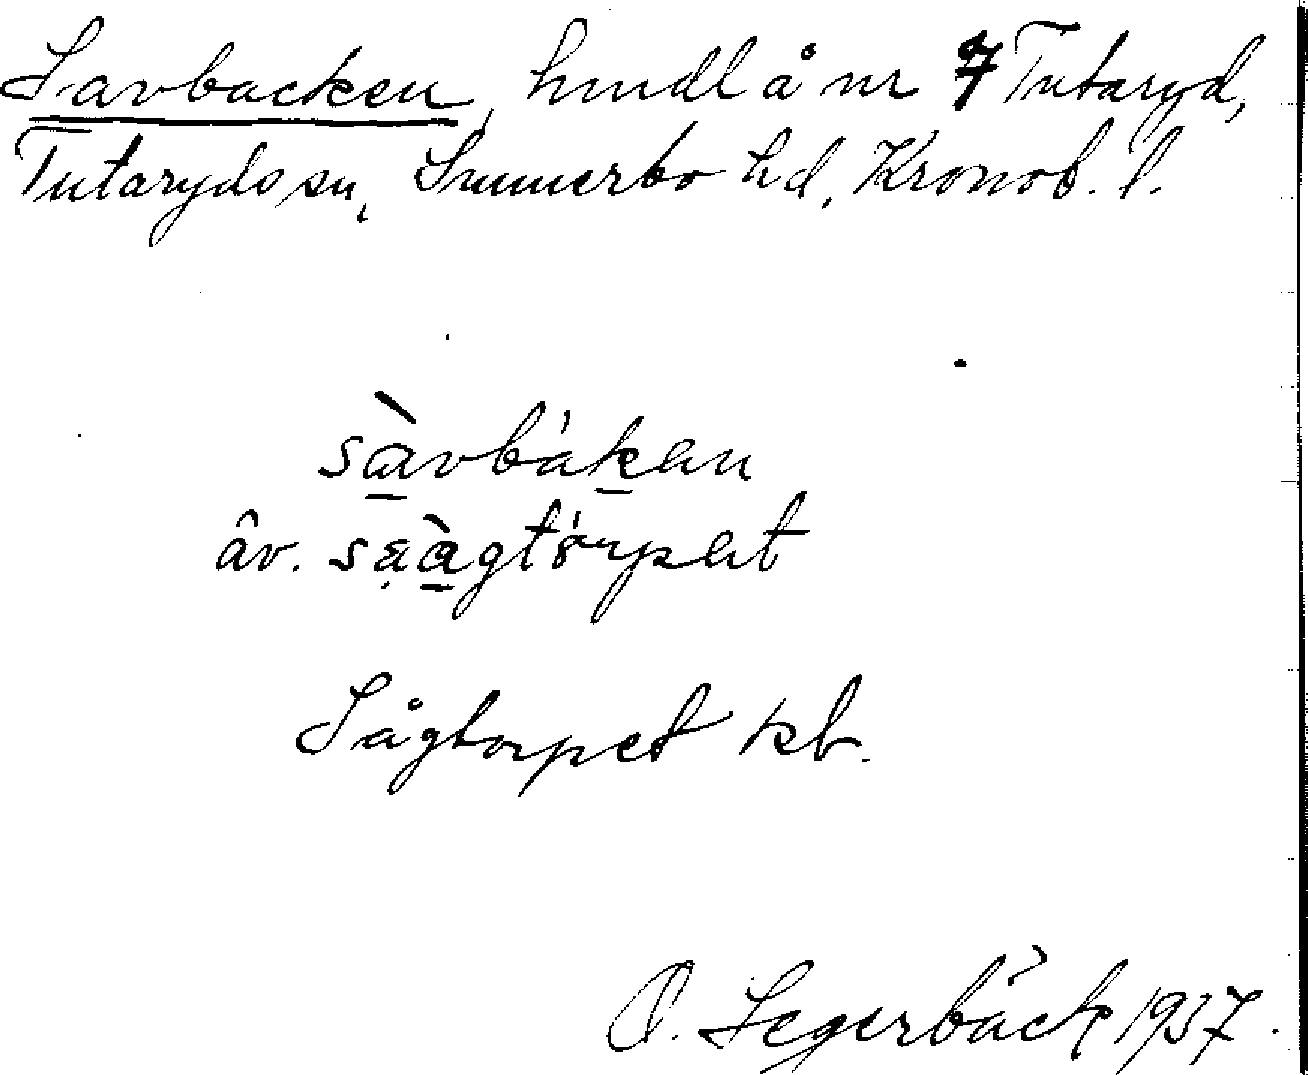 Savbacken, hmdl å nr 7 Tutaryd,
Tutaryds sn, Sunnerbo hd, Kronob. l.
sàvbákən
äv. sàagtórpət
Sågtorpet kb.
O. Segerbäck 1937.